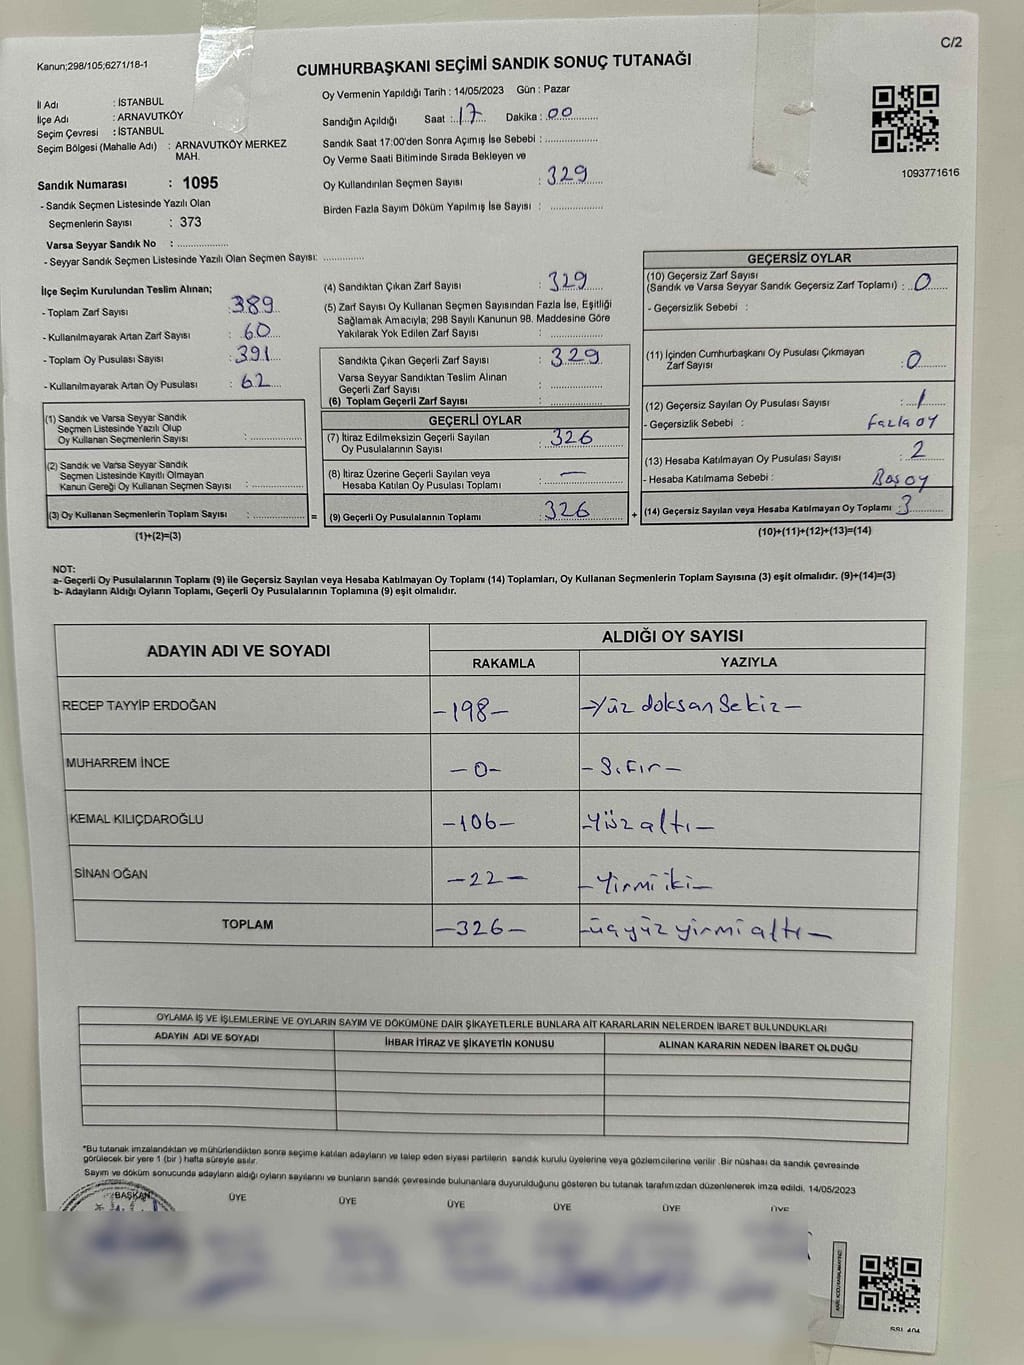 C/2
Kanun;298/105;6271/18-1
CUMHURBAŞKANI SEÇİMİ SANDIK SONUÇ TUTANAĞI
İl Adı : İSTANBUL
İlçe Adı : ARNAVUTKÖY
Seçim Çevresi : İSTANBUL
Seçim Bölgesi (Mahalle Adı) : ARNAVUTKÖY MERKEZ
MAH.
Sandık Numarası : 1095
- Sandık Seçmen Listesinde Yazılı Olan
Seçmenlerin Sayısı : 373
Varsa Seyyar Sandık No : ....................
- Seyyar Sandık Seçmen Listesinde Yazılı Olan Seçmen Sayısı: ..............
Oy Vermenin Yapıldığı Tarih : 14/05/2023 Gün : Pazar
Sandığın Açıldığı Saat : 17 Dakika : 00
Sandık Saat 17:00'den Sonra Açımış İse Sebebi : ....................
Oy Verme Saati Bitiminde Sırada Bekleyen ve
Oy Kullandırılan Seçmen Sayısı : 329
Birden Fazla Sayım Döküm Yapılmış İse Sayısı : ....................
1093771616
İlçe Seçim Kurulundan Teslim Alınan;
- Toplam Zarf Sayısı : 389
- Kullanılmayarak Artan Zarf Sayısı : 60
- Toplam Oy Pusulası Sayısı : 391
- Kullanılmayarak Artan Oy Pusulası : 62
(1) Sandık ve Varsa Seyyar Sandık
Seçmen Listesinde Yazılı Olup
Oy Kullanan Seçmenlerin Sayısı : ....................
(2) Sandık ve Varsa Seyyar Sandık
Seçmen Listesinde Kayıtlı Olmayan
Kanun Gereği Oy Kullanan Seçmen Sayısı : ....................
(3) Oy Kullanan Seçmenlerin Toplam Sayısı : ....................
(1)+(2)=(3)
(4) Sandıktan Çıkan Zarf Sayısı : 329
(5) Zarf Sayısı Oy Kullanan Seçmen Sayısından Fazla İse, Eşitliği
Sağlamak Amacıyla; 298 Sayılı Kanunun 98. Maddesine Göre
Yakılarak Yok Edilen Zarf Sayısı : ....................
Sandıkta Çıkan Geçerli Zarf Sayısı : 329
Varsa Seyyar Sandıktan Teslim Alınan
Geçerli Zarf Sayısı : ....................
(6) Toplam Geçerli Zarf Sayısı : ....................
GEÇERLİ OYLAR
(7) İtiraz Edilmeksizin Geçerli Sayılan
Oy Pusulalarının Sayısı : 326
(8) İtiraz Üzerine Geçerli Sayılan veya
Hesaba Katılan Oy Pusulası Toplamı : —
= (9) Geçerli Oy Pusulalarının Toplamı : 326 +
GEÇERSİZ OYLAR
(10) Geçersiz Zarf Sayısı
(Sandık ve Varsa Seyyar Sandık Geçersiz Zarf Toplamı) : 0
- Geçersizlik Sebebi :
(11) İçinden Cumhurbaşkanı Oy Pusulası Çıkmayan
Zarf Sayısı : 0
(12) Geçersiz Sayılan Oy Pusulası Sayısı : 1
- Geçersizlik Sebebi : Fazla oy
(13) Hesaba Katılmayan Oy Pusulası Sayısı : 2
- Hesaba Katılmama Sebebi : Boş oy
(14) Geçersiz Sayılan veya Hesaba Katılmayan Oy Toplamı : 3
(10)+(11)+(12)+(13)=(14)
NOT:
a- Geçerli Oy Pusulalarının Toplamı (9) ile Geçersiz Sayılan veya Hesaba Katılmayan Oy Toplam (14) Toplamları, Oy Kullanan Seçmenlerin Toplam Sayısına (3) eşit olmalıdır. (9)+(14)=(3)
b- Adayların Aldığı Oyların Toplamı, Geçerli Oy Pusulalarının Toplamına (9) eşit olmalıdır.
ADAYIN ADI VE SOYADI ALDIĞI OY SAYISI
RAKAMLA YAZIYLA
RECEP TAYYİP ERDOĞAN -198- -Yüz doksan Sekiz-
MUHARREM İNCE -0- -Sıfır-
KEMAL KILIÇDAROĞLU -106- -Yüz altı-
SİNAN OĞAN -22- -Yirmi iki-
TOPLAM -326- -üçyüz yirmi altı-
OYLAMA İŞ VE İŞLEMLERİNE VE OYLARIN SAYIM VE DÖKÜMÜNE DAİR ŞİKAYETLERLE BUNLARA AİT KARARLARIN NELERDEN İBARET BULUNDUKLARI
ADAYIN ADI VE SOYADI İHBAR İTİRAZ VE ŞİKAYETİN KONUSU ALINAN KARARIN NEDEN İBARET OLDUĞU
*Bu tutanak imzalandıktan ve mühürlendikten sonra seçime katılan adayların ve talep eden siyasi partilerin sandık kurulu üyelerine veya gözlemcilerine verilir .Bir nüshası da sandık çevresinde
görülecek bir yere 1 (bir ) hafta süreyle asılır.
Sayım ve döküm sonucunda adayların aldığı oyların sayılarını ve bunların sandık çevresinde bulunanlara duyurulduğunu gösteren bu tutanak tarafımızdan düzenlenerek imza edildi. 14/05/2023
BAŞKAN ÜYE ÜYE ÜYE ÜYE ÜYE ÜYE